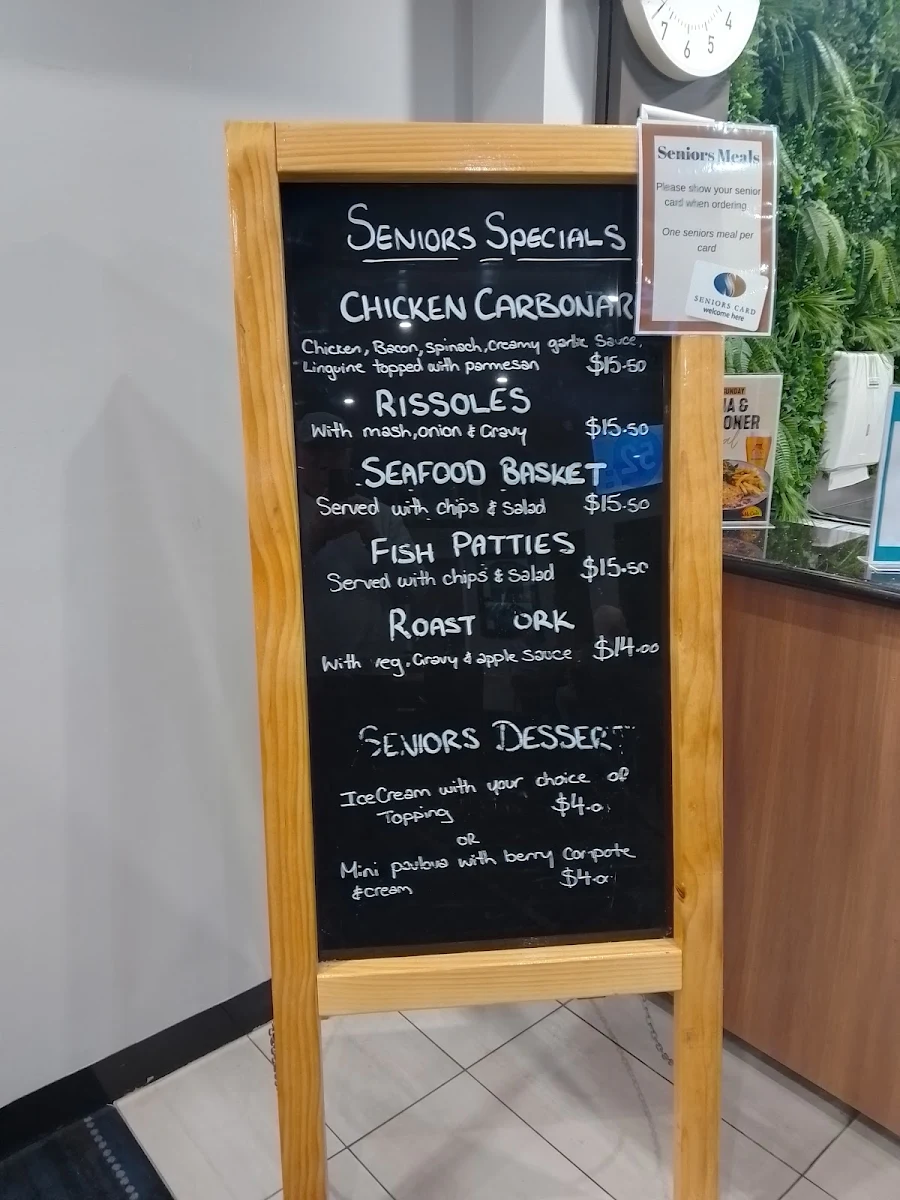 7 6 5 4
Seniors Meals
Please show your senior
card when ordering
One seniors meal per
card
SENIORS CARD
welcome here
SENIORS SPECIALS
CHICKEN CARBONAR
Chicken, Bacon, spinach, creamy garlic Sauce.
Linguine topped with parmesan $15.50
RISSOLES
With mash, onion & Gravy $15.50
SEAFOOD BASKET
Served with chips & Salad $15.50
FISH PATTIES
Served with chips & Salad $15.50
ROAST ORK
With veg. Gravy & apple Sauce $14.00
SENIORS DESSERT
Ice Cream with your choice of
Topping $4.0
OR
Mini pavlova with berry Compote
& cream $4.0
SUNDAY
A &
ONER